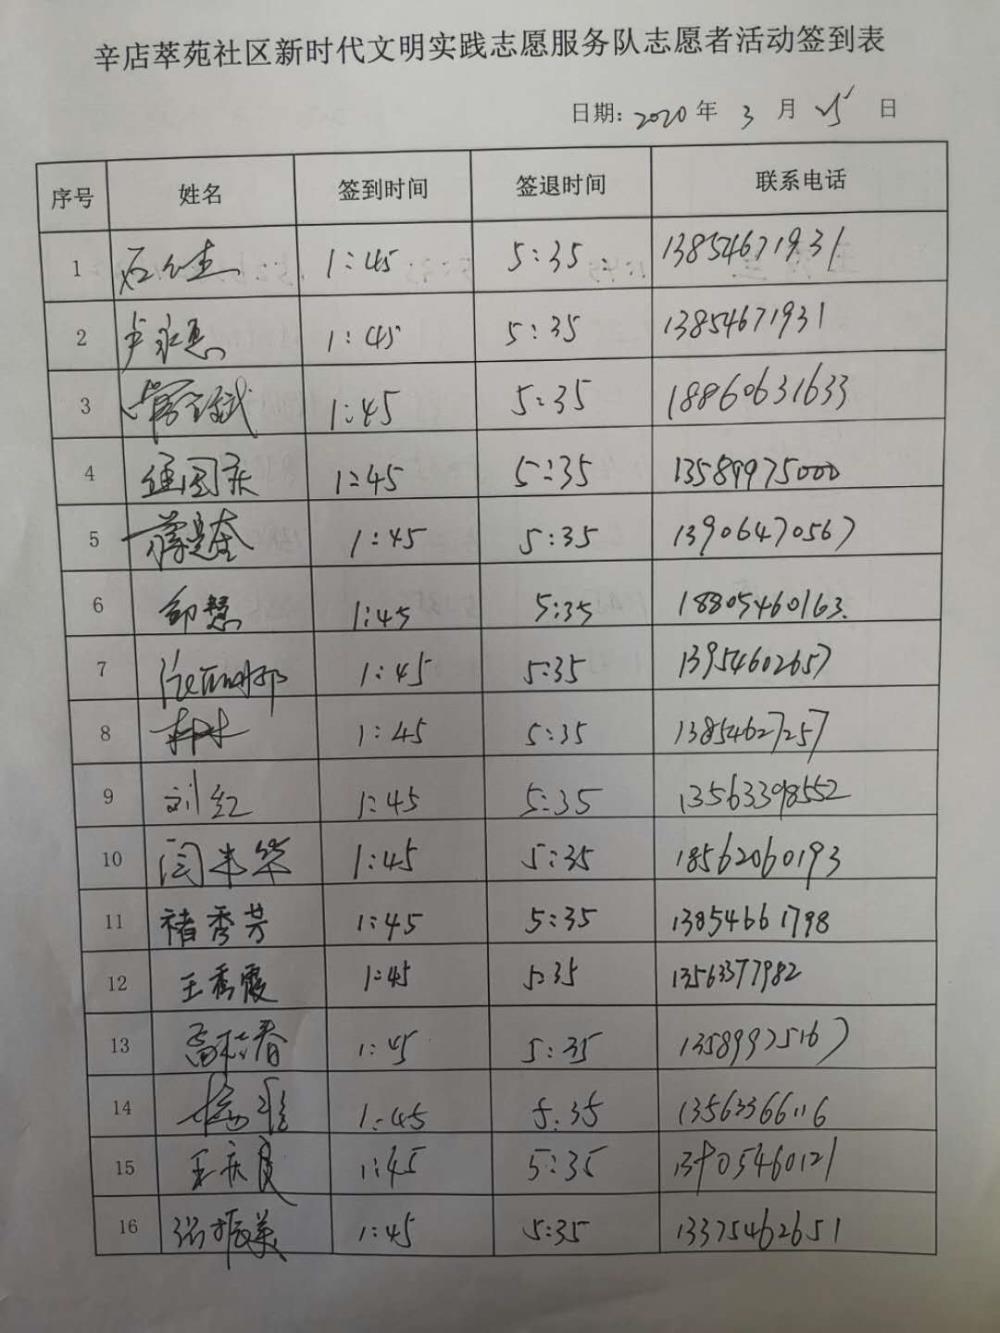 辛店萃苑社区新时代文明实践志愿服务队志愿者活动签到表
日期: 2020 年 3 月 25 日
序号 姓名 签到时间 签退时间 联系电话
1 1:45 5:35 13854671931
2 卢永惠 1:45 5:35 13854671931
3 1:45 5:35 18860631633
4 1:45 5:35 13589975000
5 1:45 5:35 13906470567
6 邹慧 1:45 5:35 18805460163
7 1:45 5:35 13954602657
8 1:45 5:35 13854627257
9 刘红 1:45 5:35 13563398552
10 闫丰华 1:45 5:35 18562060193
11 褚秀芳 1:45 5:35 13854661798
12 王秀霞 1:45 5:35 13563377982
13 1:45 5:35 13589975167
14 1:45 5:35 13563366116
15 王庆良 1:45 5:35 13905460121
16 张振美 1:45 5:35 13375462651